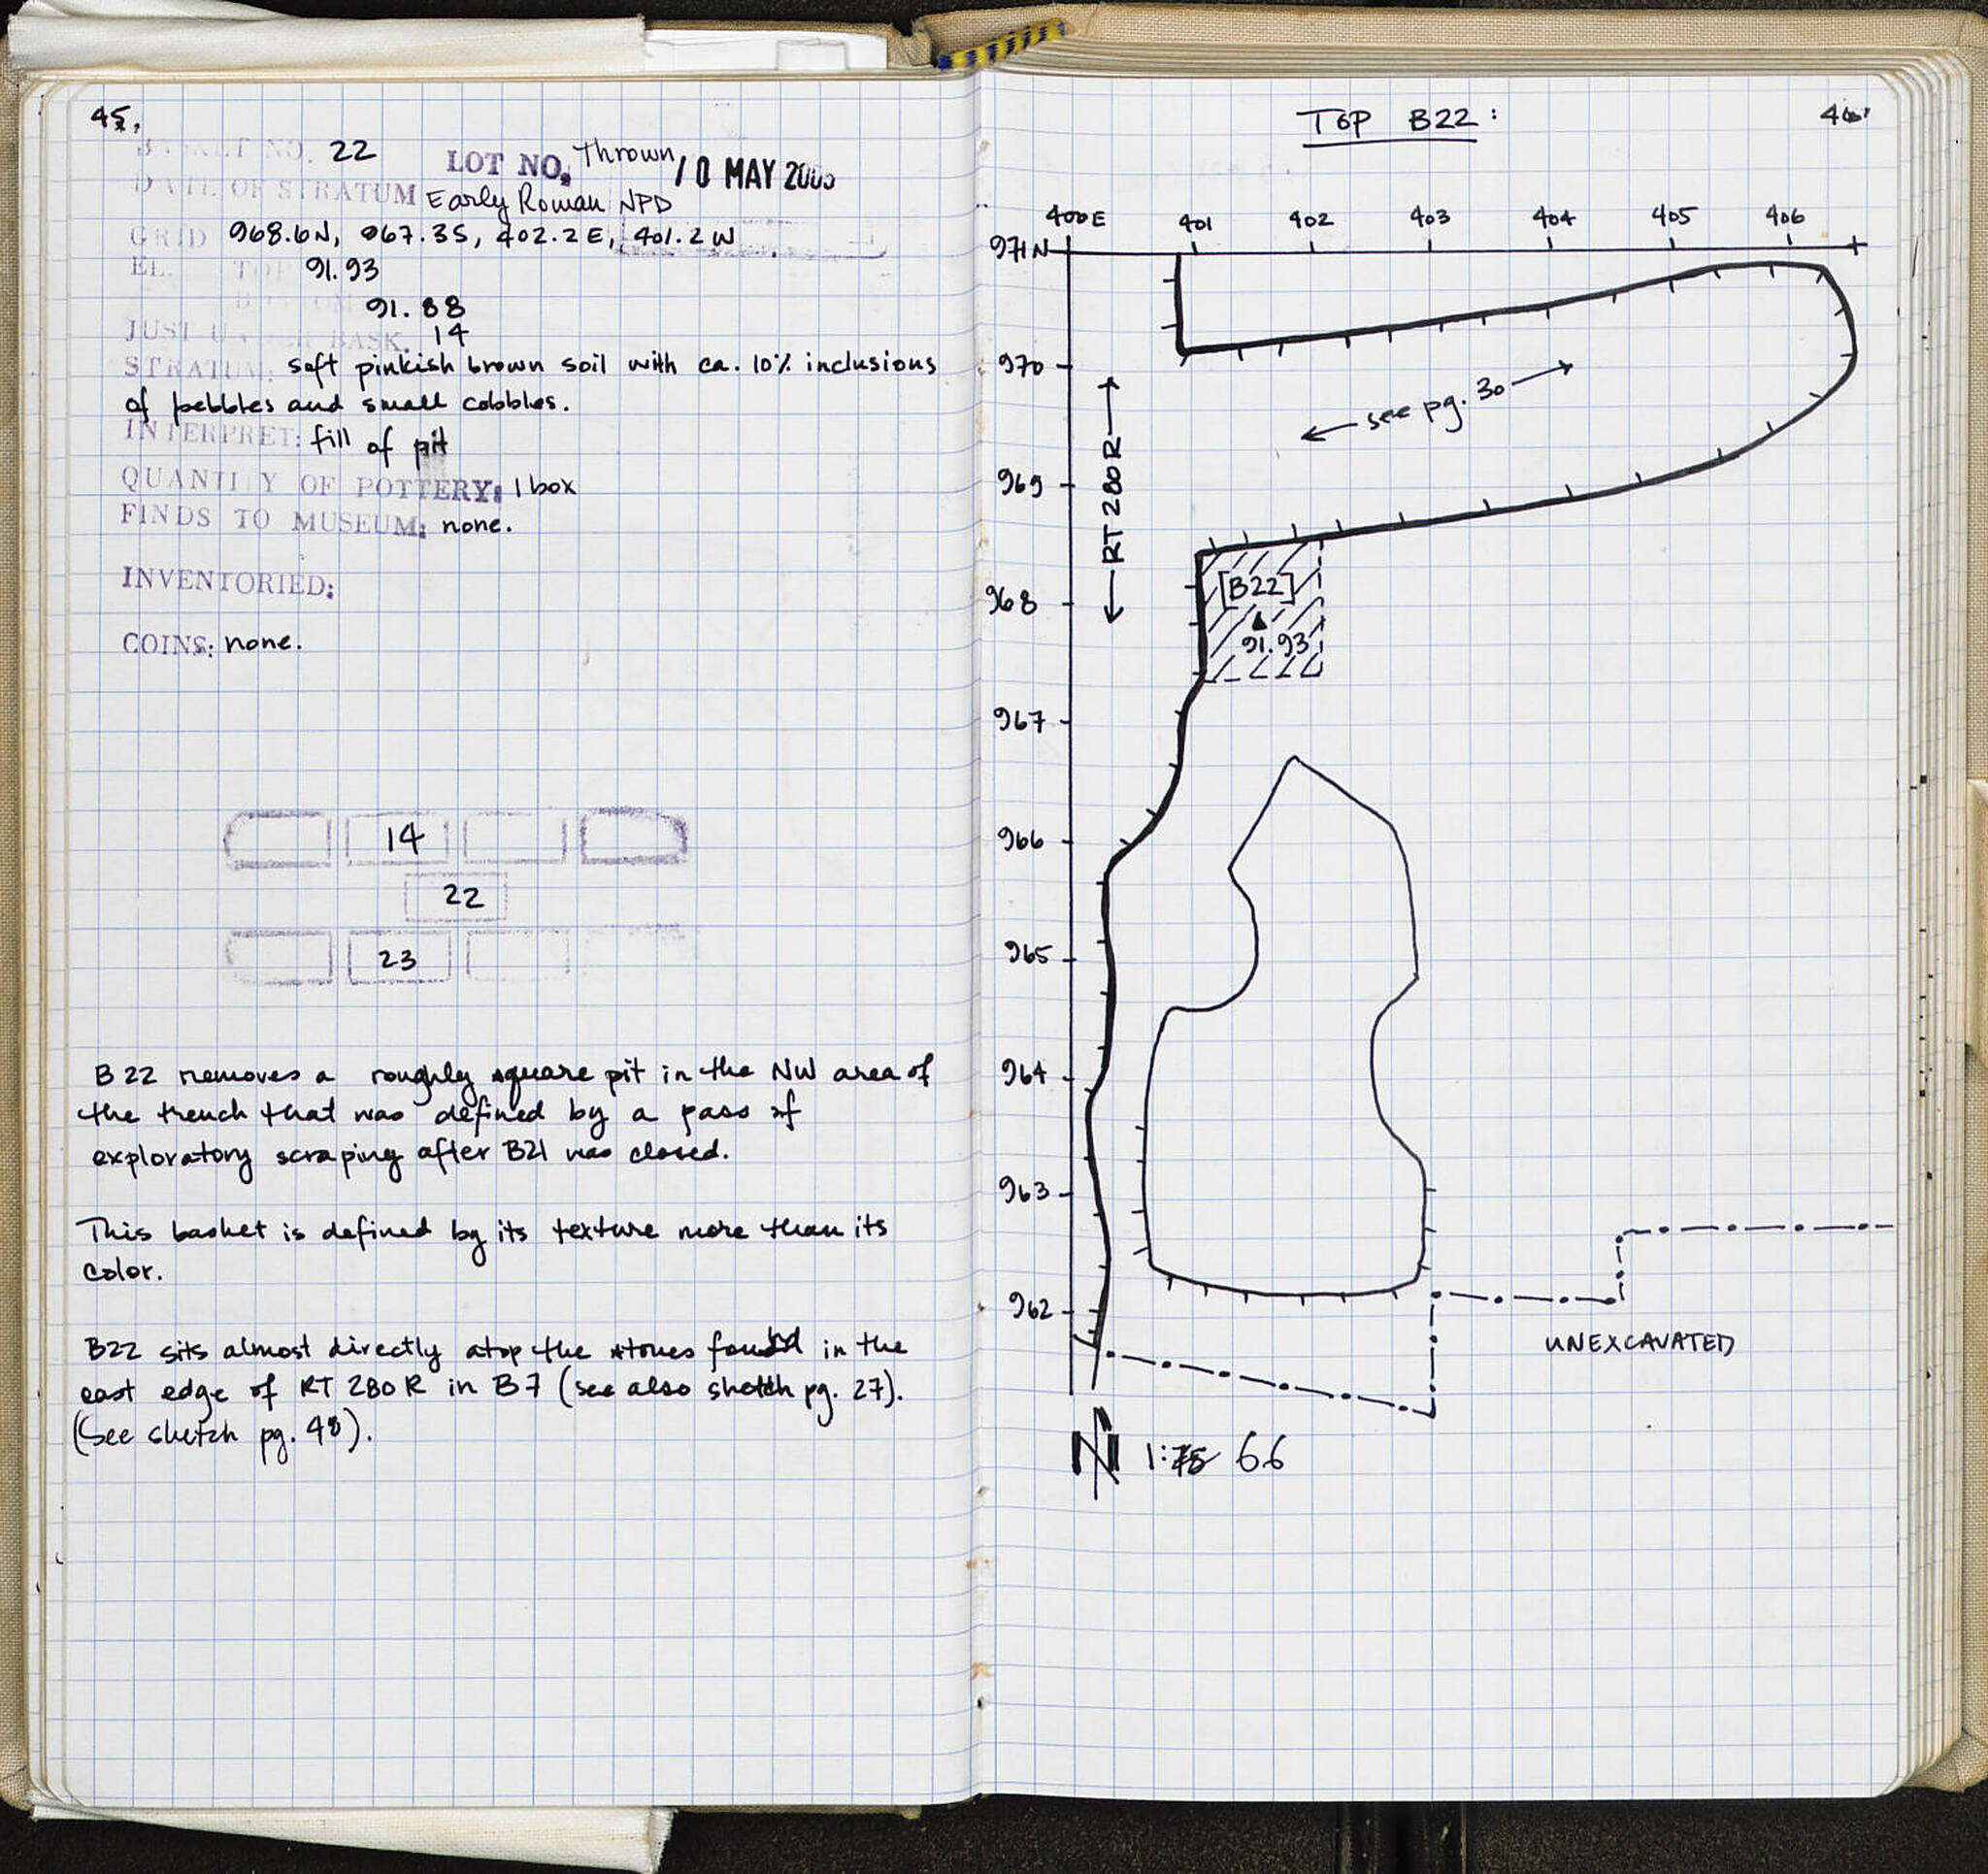 45.
BASKET NO. 22
LOT NO. Thrown
10 MAY 2005
DATE OF STRATUM Early Roman NPD
GRID 968.6N, 967.3S, 402.2E, 401.2W
EL. TOP 91.93
BOTTOM 91.88
JUST UNDER BASK. 14
STRATUM: soft pinkish brown soil with ca. 10% inclusions
of pebbles and small cobbles.
INTERPRET: fill of pit
QUANTITY OF POTTERY: 1 box
FINDS TO MUSEUM: none.
INVENTORIED:
COINS: none.
14
22
23
B22 removes a roughly square pit in the NW area of
the trench that was defined by a pass of
exploratory scraping after B21 was closed.
This basket is defined by its texture more than its
color.
B22 sits almost directly atop the stones found in the
east edge of RT 280R in B7 (see also sketch pg. 27).
(See sketch pg. 48).
TOP B22:
46.
400E 401 402 403 404 405 406
971N
970
969
968
967
966
965
964
963
962
← see pg. 30 →
← RT 280R →
[B22]
91.93
UNEXCAVATED
N 1:75 66